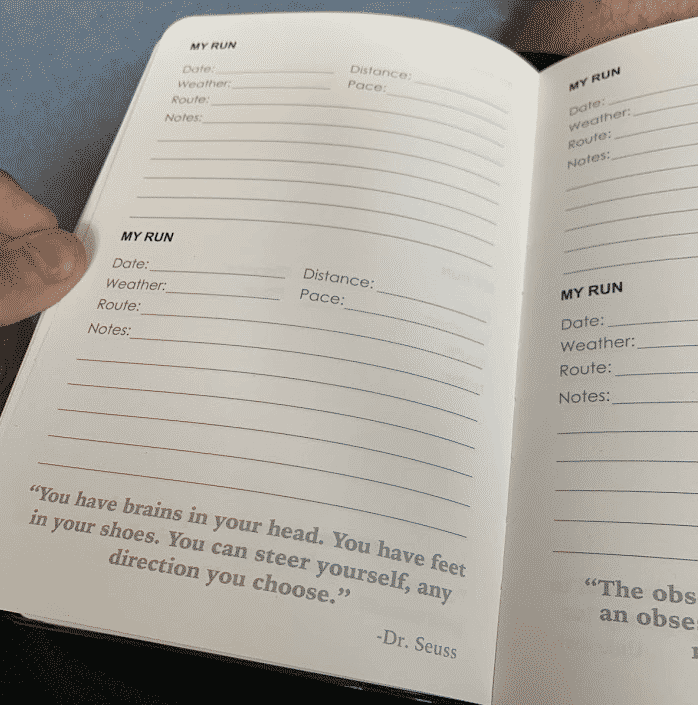 MY RUN
Date:
Distance:
Weather:
Pace:
Route:
Notes:
MY RUN
Date:
Distance:
Weather:
Pace:
Route:
Notes:
“You have brains in your head. You have feet
in your shoes. You can steer yourself, any
direction you choose.”
-Dr. Seuss
MY RUN
Date:
Weather:
Route:
Notes:
MY RUN
Date:
Weather:
Route:
Notes:
“The
an